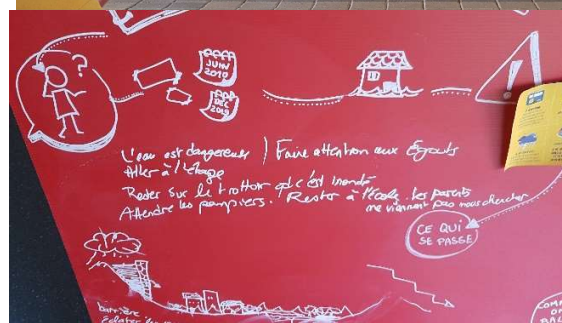 ?
JUIN
2010
DEC
2019
!
L'eau est dangereuse | Faire attention aux Égouts
Aller à l'étage
Rester sur le trottoir qd c'est inondé
Attendre les pompiers. Rester à l'école. les parents
ne viennent pas nous chercher
CE QUI
SE PASSE
barrière
éclater